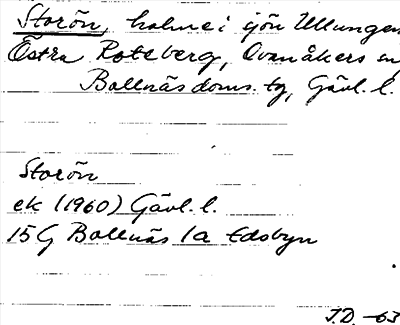 Storön, holme i sjön Ullungen
Östra Roteberg, Ovanåkers sn,
Bollnäs doms. tg, Gävl. l.
Storön
ek (1960) Gävl. l.
15G Bollnäs 1a Edsbyn
J.D. -63